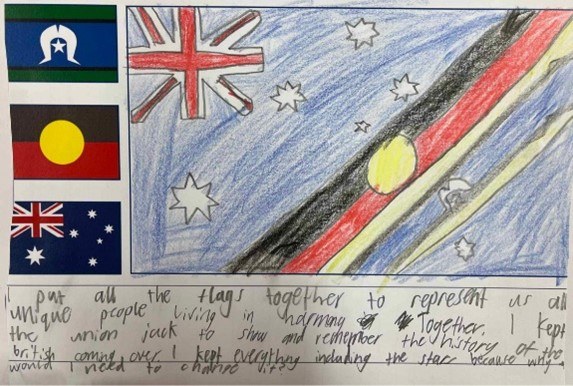 I put all the flags together to represent us all
unique people living in harmony Together. I kept
the union jack to show and remember the history of the
british coming over. I kept everything including the stars because why
would I need to change it?